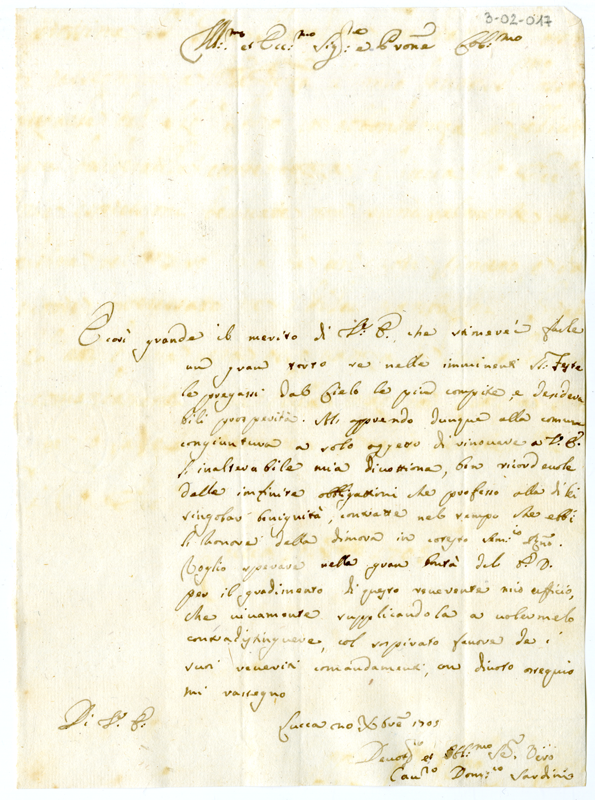 3-02-017
Ill:mo et Ecc:mo Sig:re e Prone Col:mo
È così grande il merito di V. E., che stimerei farle
un gran torto se nelle imminenti SS. Feste
le pregassi dal Cielo le più compite, e desidera
bili prosperità. Mi apprendo dunque alla comune
congiuntura a solo oggetto di rinovare a V. E.
l'inalterabile mia divottione, ben ricordevole
delle infinite obligattioni che professo alla di lei
singolar benignità, contratte nel tempo che ebbi
l'honore della dimora in cotesto
Voglio sperare nella gran bontà del
per il gradimento di questo reverente mio ufficio,
che vivamente supplicandola a volermelo
contradistinguere, col sospirato favore de i
suoi veneriti comandamenti, con divoto ossequio
mi rassegno
Di V. E. Lucca bre 1703
et Obbl:mo
Dom:co Sardini